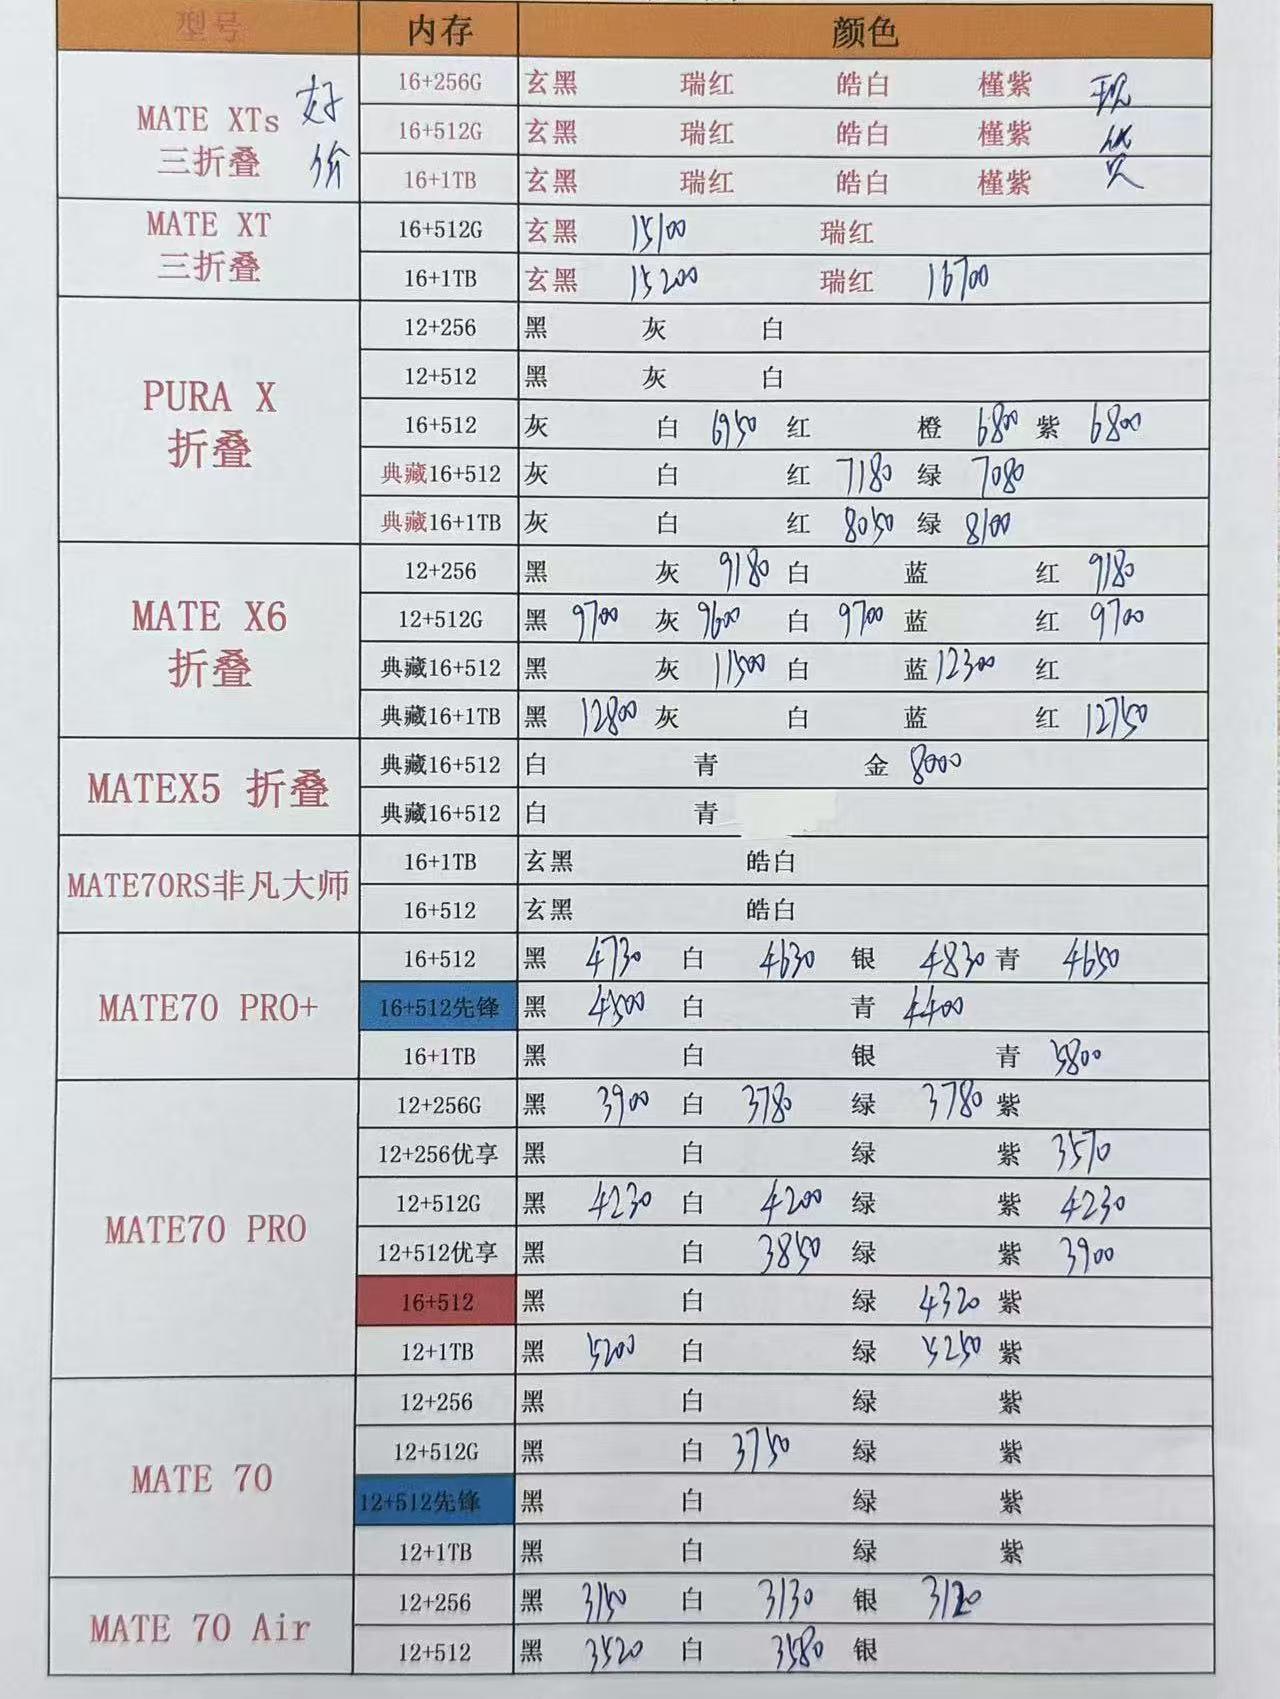 型号 内存 颜色
MATE XTs 三折叠 好价 16+256G 玄黑 瑞红 皓白 槿紫 现货
16+512G 玄黑 瑞红 皓白 槿紫
16+1TB 玄黑 瑞红 皓白 槿紫
MATE XT 三折叠 16+512G 玄黑 15100 瑞红
16+1TB 玄黑 15200 瑞红 16700
PURA X 折叠 12+256 黑 灰 白
12+512 黑 灰 白
16+512 灰 白 6950 红 橙 6800 紫 6800
典藏16+512 灰 白 红 7180 绿 7080
典藏16+1TB 灰 白 红 8050 绿 8100
MATE X6 折叠 12+256 黑 灰 9180 白 蓝 红 9180
12+512G 黑 9700 灰 9600 白 9700 蓝 红 9700
典藏16+512 黑 灰 11500 白 蓝 12300 红
典藏16+1TB 黑 12800 灰 白 蓝 红 12750
MATEX5 折叠 典藏16+512 白 青 金 8000
典藏16+512 白 青
MATE70RS非凡大师 16+1TB 玄黑 皓白
16+512 玄黑 皓白
MATE70 PRO+ 16+512 黑 4730 白 4630 银 4830 青 4650
16+512先锋 黑 4500 白 青 4400
16+1TB 黑 白 银 青 5800
MATE70 PRO 12+256G 黑 3900 白 3780 绿 3780 紫
12+256优享 黑 白 绿 紫 3570
12+512G 黑 4230 白 4200 绿 紫 4230
12+512优享 黑 白 3850 绿 紫 3900
16+512 黑 白 绿 4320 紫
12+1TB 黑 5200 白 绿 5250 紫
MATE 70 12+256 黑 白 绿 紫
12+512G 黑 白 3750 绿 紫
12+512先锋 黑 白 绿 紫
12+1TB 黑 白 绿 紫
MATE 70 Air 12+256 黑 3150 白 3130 银 3120
12+512 黑 3520 白 3580 银